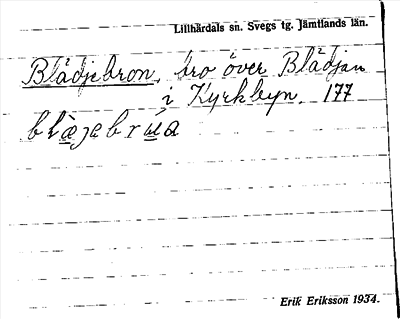 Lillhärdals sn. Svegs tg. Jämtlands län.
Blädjebron, bro över Blädjan
i Kyrkbyn. 177
Erik Eriksson 1934.